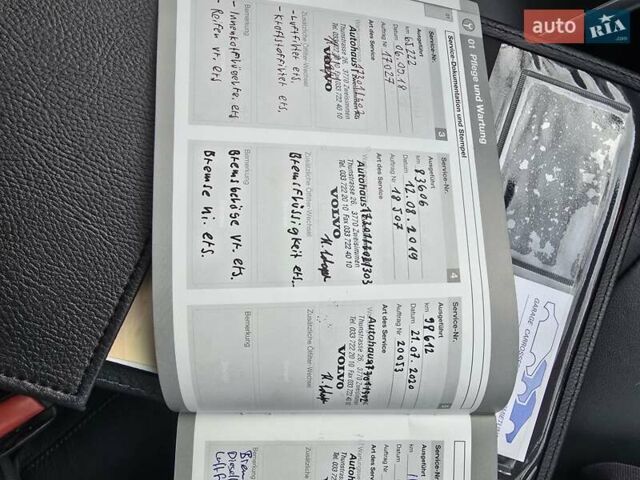 auto RIA.com
01 Pflege und Wartung
Service-Dokumentation und Stempel
Service-Nr. 3
Ausgeführt
km 65222
Datum 06.09.18
Auftrag Nr. 17027
Art des Service
Autohaus
Thunstrasse 26, 3770 Zweisimmen
Tel. 033 722 20 10 Fax 033 722 40 10
VOLVO
Zusätzliche Ölfilter-Wechsel
- Luftfilter ers.
- Kraftstofffilter ers.
Bemerkung
- Innenluftfilter ers
- Reifen vr. ers
Service-Nr. 4
Ausgeführt
km 83606
Datum 12.08.2019
Auftrag Nr. 18507
Art des Service
Autohaus
Thunstrasse 26, 3770 Zweisimmen
Tel. 033 722 20 10 Fax 033 722 40 10
VOLVO
Zusätzliche Ölfilter-Wechsel
Bremsflüssigkeit ers.
Bemerkung
Bremsbeläge vr. ers.
Bremse hi. ers.
Service-Nr. 5
Ausgeführt
km 98612
Datum 21.07.2020
Auftrag Nr. 20053
Art des Service
Autohaus
Thunstrasse 26, 3770 Zweisimmen
Tel. 033 722 20 10 Fax 033 722 40 10
VOLVO
Zusätzliche Ölfilter-Wechsel
Bemerkung
Service-Nr.
Ausgeführt
km
Datum
Auftrag Nr.
Art des Service
Autoha
Thunstrasse
Tel. 033
Zusätzliche
Bemerkung
GARAGE